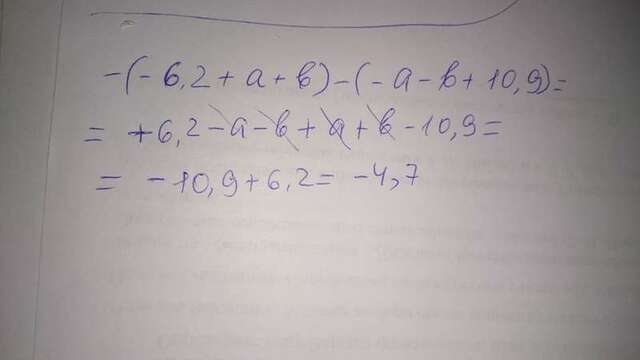 -(-6,2+a+b)-(-a-b+10,9)=
= +6,2-a-b+a+b-10,9=
= -10,9+6,2= -4,7